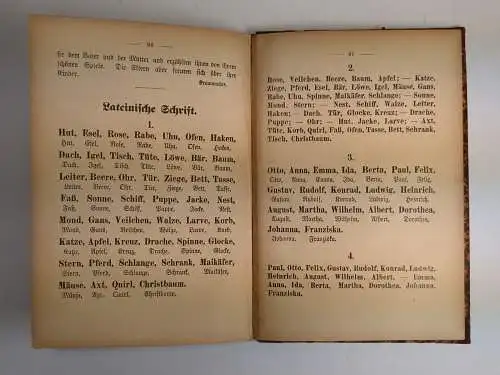 90
sie dem Vater und der Mutter und erzählten ihnen von ihrem
schönen Spiele. Die Eltern aber freuten sich über ihre
Kinder.
Lateinische Schrift.
1.
Hut, Esel, Rose, Rabe, Uhu, Ofen, Haken,
Hut, Esel, Rose, Rabe, Uhu, Ofen, Haken.
Dach, Igel, Tisch, Tüte, Löwe, Bär, Baum,
Dach, Igel, Tisch, Tüte, Löwe, Bär, Baum.
Leiter, Beere, Ohr, Tür, Ziege, Bett, Tasse,
Leiter, Beere, Ohr, Tür, Ziege, Bett, Tasse.
Faß, Sonne, Schiff, Puppe, Jacke, Nest,
Faß, Sonne, Schiff, Puppe, Jacke, Nest.
Mond, Gans, Veilchen, Walze, Larve, Korb,
Mond, Gans, Veilchen, Walze, Larve, Korb.
Katze, Apfel, Kreuz, Drache, Spinne, Glocke,
Katze, Apfel, Kreuz, Drache, Spinne, Glocke.
Stern, Pferd, Schlange, Schrank, Maikäfer,
Stern, Pferd, Schlange, Schrank, Maikäfer.
Mäuse, Axt, Quirl, Christbaum.
Mäuse, Axt, Quirl, Christbaum.
91
2.
Rose, Veilchen, Beere, Baum, Apfel; — Katze,
Ziege, Pferd, Esel, Bär, Löwe, Igel, Mäuse, Gans,
Rabe, Uhu, Spinne, Maikäfer, Schlange; — Sonne,
Mond, Stern; — Nest, Schiff, Walze, Leiter,
Haken; — Dach, Tür, Glocke, Kreuz; — Drache,
Puppe; — Ohr; — Hut, Jacke, Larve; — Axt,
Tüte, Korb, Quirl, Faß, Ofen, Tasse, Bett, Schrank,
Tisch, Christbaum.
3.
Otto, Anna, Emma, Ida, Berta, Paul, Felix,
Otto, Anna, Emma, Ida, Berta, Paul, Felix,
Gustav, Rudolf, Konrad, Ludwig, Heinrich,
Gustav, Rudolf, Konrad, Ludwig, Heinrich,
August, Martha, Wilhelm, Albert, Dorothea,
August, Martha, Wilhelm, Albert, Dorothea,
Johanna, Franziska.
Johanna, Franziska.
4.
Paul, Otto, Felix, Gustav, Rudolf, Konrad, Ludwig,
Heinrich, August, Wilhelm, Albert, — Emma,
Anna, Ida, Berta, Martha, Dorothea, Johanna,
Franziska.